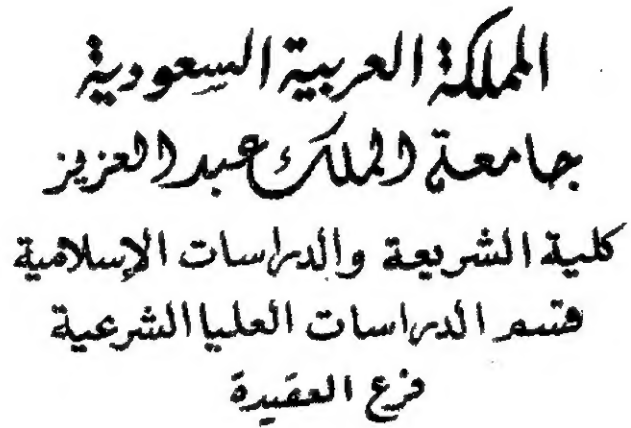 المملكة العربية السعودية
جامعة الملك عبد العزيز
كلية الشريعة والدراسات الإسلامية
قسم الدراسات العليا الشرعية
فرع العقيدة